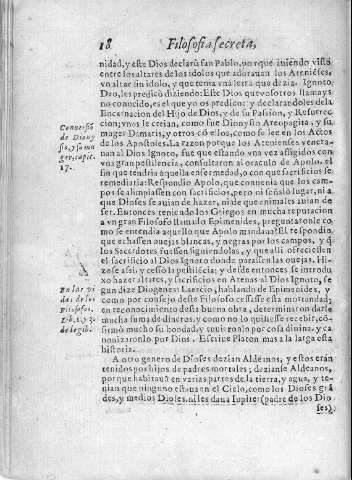 18 Filosofia secreta,
nidad, y este Dios declarò san Pablo, porque auiendo visto
entre los altares de los idolos que adorauan los Atenieses,
vn altar sin idolo, y que tenia vna letra que dezia. Ignoto
Deo, les predicò diziendo: Este Dios que vosotros llamays
no conocido, es el que yo os predico: y declarandoles de la
Encarnacion del Hijo de Dios, y de su Passion, y Resurrec
cion, vnos le creyeron, como fue Dionysio Areopagita, y su
muger Damaris, y otros cō ellos, como se lee en los Actos
de los Apostoles. La razon porque los Atenienses venera-
uan al Dios Ignoto, fue que estando vna vez afligidos con
vna gran pestilencia, consultaron al oraculo de Apolo, el
fin que tendria aquella enfermedad, o con que sacrificios se
remediaria: Respondio Apolo, que conuenia que los cam-
pos se alimpiassen con sacrificios, pero ni señalò lugar, ni a
que Dioses se auian de hazer, ni de que animales auian de
ser. Entonces teniendo los Griegos en mucha reputacion
a vn gran Filosofo llamado Epimenides, preguntaronle co
mo se entendia aquello que Apolo mandaua? El respondio,
que echassen ouejas blancas, y negras por los campos, y q̄
los Sacerdotes fuessen siguiendolas, y que alli ofreciessen
el sacrificio al Dios Ignoto donde parassen las ouejas. Hi-
zose assi, y cessò la pestilēcia; y desde entonces se introdu-
xo hazer altares, y sacrificios en Atenas al Dios Ignoto, se
gun dize Diogenes Laercio, hablando de Epimenides, y
como por consejo deste Filosofo cessasse esta mortandad,
en reconocimiento desta buena obra, determinaron darle
mucha suma de dineros, y como no lo quisiesse recebir, cō-
firmò mucho su bondad, y tuuieronlo por cosa diuina, y ca
nonizaronlo por Dios. Escriue Platon mas a la larga esta
historia.
A otro genero de Dioses dezian Aldeanos, y estos eran
tenidos por hijos de padres mortales; dezianse Aldeanos,
porque habitauā en varias partes de la tierra, y agua, y te-
nian que ninguno estaua en el Cielo, como los Dioses grā
des, y medios Dioses, ni les daua Iupiter (padre de los Dio
ses)
Conuersiō
de Diony
sio, y su mu
ger, capit.
17.
En las vi
das de los
Filosofos,
de legib.